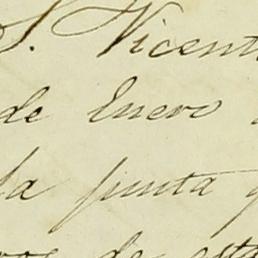 S. Vicent
de Enero
la junta q
de esta